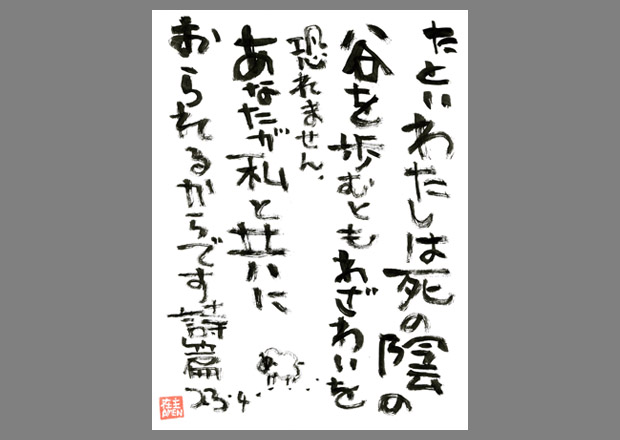 たといわたしは死の陰の
谷を歩むともわざわいを
恐れません。
あなたが私と共に
おられるからです 詩篇
23・4
在主
AMEN